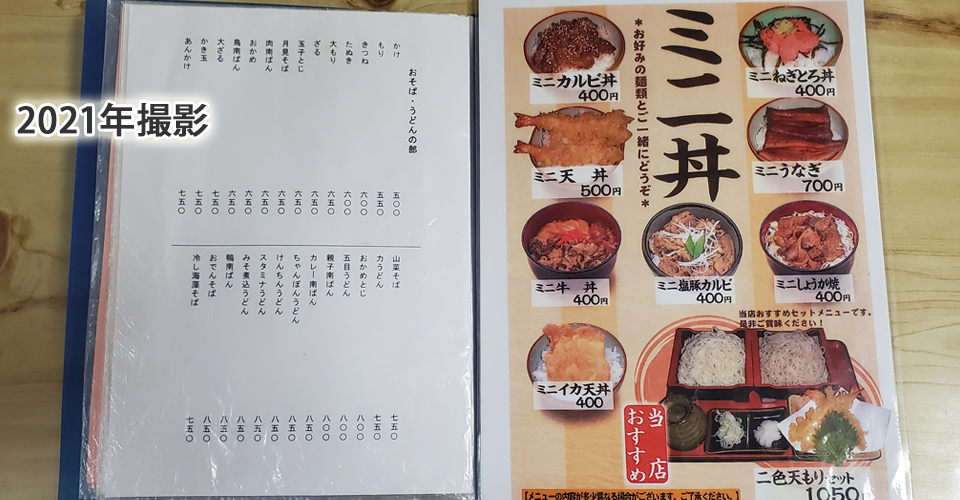 2021年撮影
おそば・うどんの部
かけ 五〇〇
もり 五五〇
きつね 六〇〇
たぬき 六〇〇
大もり 六五〇
ざる 六五〇
玉子とじ 六五〇
月見そば 六五〇
肉南ばん 六五〇
おかめ 六五〇
鳥南ばん 六五〇
大ざる 七五〇
かき玉 七五〇
あんかけ 七五〇
山菜そば 七五〇
力うどん 七五〇
おかめとじ 八〇〇
五目うどん 八〇〇
親子南ばん 八〇〇
カレー南ばん 八五〇
ちゃんぽんうどん 八五〇
けんちんうどん 八五〇
スタミナうどん 八五〇
みそ煮込うどん 八五〇
鴨南ばん 八五〇
おでんそば 八五〇
冷し海藻そば 七五〇
ミニ丼
*お好みの麺類とご一緒にどうぞ*
ミニカルビ丼
400円
ミニねぎとろ丼
400円
ミニ天丼
500円
ミニうなぎ
700円
ミニ牛丼
400円
ミニ塩豚カルビ
400円
ミニしょうが焼
400円
ミニイカ天丼
400
当店おすすめセットメニューです。
是非ご賞味ください！
当店
おすすめ
二色天もりセット
1050
【メニューの内容が多少異なる場合がございます。ご了承ください。】